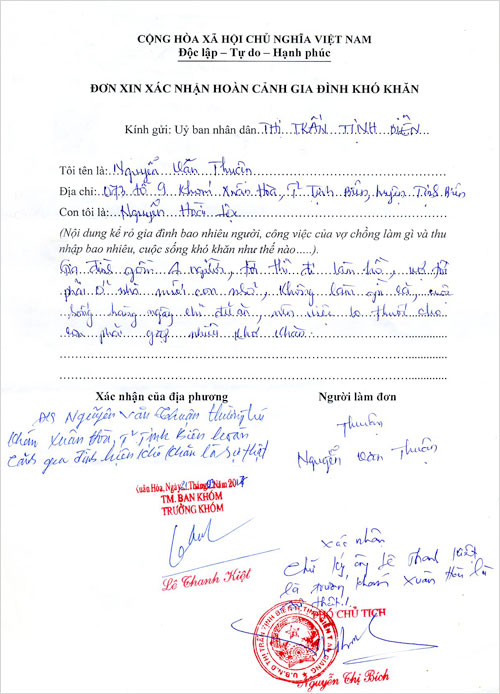 CỘNG HÒA XÃ HỘI CHỦ NGHĨA VIỆT NAM
Độc lập – Tự do – Hạnh phúc
ĐƠN XIN XÁC NHẬN HOÀN CẢNH GIA ĐÌNH KHÓ KHĂN
Kính gửi: Uỷ ban nhân dân THỊ TRẤN TỊNH BIÊN
Tôi tên là: Nguyễn Văn Thuận
Địa chỉ: 073 tổ 9 Khóm Xuân Hòa, T² Tịnh Biên, huyện Tịnh Biên
Con tôi là: Nguyễn Hoài
(Nội dung kể rỏ gia đình bao nhiêu người, công việc của vợ chồng làm gì và thu
nhập bao nhiêu, cuộc sống khó khăn như thế nào.....).
Gia đình gồm 4 người, tôi thì đi làm hồ, vợ tôi
phải ở nhà nuôi con nhỏ, không làm gì cả, cuộc
sống hàng ngày chỉ đủ ăn, nên việc lo thuốc cho
con phải gặp nhiều khó khăn
Xác nhận của địa phương
Người làm đơn
Nguyễn Văn Thuận thường trú
Khóm Xuân Hòa, T² Tịnh Biên hoàn
cảnh gia đình hiện khó khăn là sự thật
Thuận
Nguyễn Văn Thuận
Xuân Hòa, Ngày 21 Tháng Năm
TM. BAN KHÓM
TRƯỞNG KHÓM
Lê Thanh Kiệt
Xác nhân
Chữ ký ông Lê Thanh Kiệt
là trưởng khóm Xuân Hòa là
thật!
PHÓ CHỦ TỊCH
Nguyễn Thị Bích